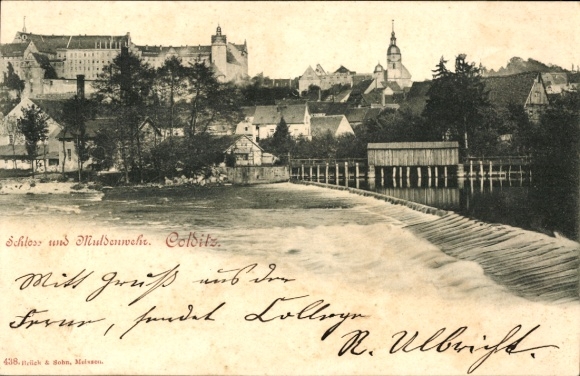 Schloss und Muldenwehr. Colditz.
Mitt Gruß aus der
Ferne, sendet College
R. Ulbricht.
438. Brück & Sohn, Meissen.